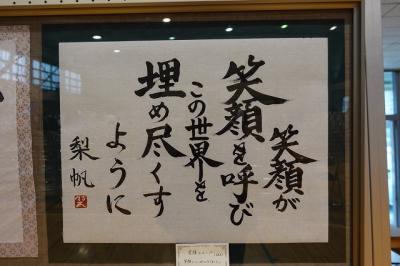 笑顔が
笑顔を呼び
この世界を
埋め尽くす
ように
梨帆